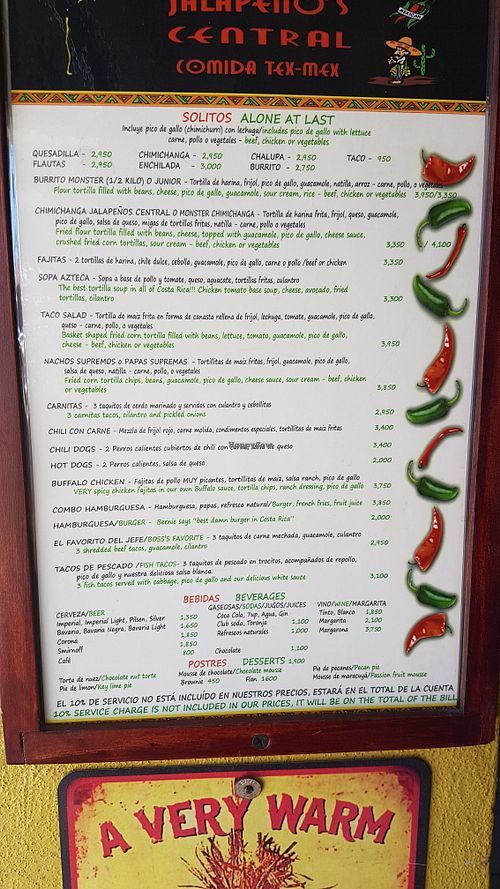 JALAPEÑO'S
CENTRAL
COMIDA TEX-MEX
SOLITOS ALONE AT LAST
Incluye pico de gallo (chimichurri) con lechuga/includes pico de gallo with lettuce
carne, pollo o vegetales - beef, chicken or vegetables
QUESADILLA - 2,950 CHIMICHANGA - 2,950 CHALUPA - 2,950 TACO - 950
FLAUTAS - 2,950 ENCHILADA - 3,000 BURRITO - 2,750
BURRITO MONSTER (1/2 KILO) O JUNIOR - Tortilla de harina, frijol, pico de gallo, guacamole, natilla, arroz - carne, pollo, o vegetales
Flour tortilla filled with beans, cheese, pico de gallo, guacamole, sour cream, rice - beef, chicken or vegetables 3,950/3,350
CHIMICHANGA JALAPEÑOS CENTRAL O MONSTER CHIMICHANGA - Tortilla de harina frita, frijol, queso, guacamole,
pico de gallo, salsa de queso, migas de tortillas fritas, natilla - carne, pollo o vegetales
Fried flour tortilla filled with beans, cheese, topped with guacamole, pico de gallo, cheese sauce,
crushed fried corn tortillas, sour cream - beef, chicken or vegetables 3,350 / 4,100
FAJITAS - 2 tortillas de harina, chile dulce, cebolla, guacamole, pico de gallo, carne o pollo /beef or chicken 3,350
SOPA AZTECA - Sopa a base de pollo y tomate, queso, aguacate, tortillas fritas, culantro
The best tortilla soup in all of Costa Rica!!! Chicken tomato base soup, cheese, avocado, fried
tortillas, cilantro 3,300
TACO SALAD - Tortilla de maiz frita en forma de canasta rellena de frijol, lechuga, tomate, guacamole, pico de gallo,
queso - carne, pollo, o vegetales
Basket shaped fried corn tortilla filled with beans, lettuce, tomato, guacamole, pico de gallo,
cheese - beef, chicken or vegetables 3,950
NACHOS SUPREMOS o PAPAS SUPREMAS - Tortillitas de maiz fritas, frijol, guacamole, pico de gallo,
salsa de queso, natilla - carne, pollo, o vegetales
Fried corn tortilla chips, beans, guacamole, pico de gallo, cheese sauce, sour cream - beef, chicken
or vegetables 3,850
CARNITAS - 3 taquitos de cerdo marinado y servidos con culantro y cebollitas
3 carnitas tacos, cilantro and pickled onions 2,950
CHILI CON CARNE - Mezcla de frijol rojo, carne molida, condimentos especiales, tortillitas de maiz fritas 3,400
CHILI DOGS - 2 Perros calientes cubiertos de chili con carne y queso 3,400
HOT DOGS - 2 Perros calientes, salsa de queso 2,000
BUFFALO CHICKEN - Fajitas de pollo MUY picantes, tortillitas de maiz, salsa ranch, pico de gallo
VERY spicy chicken fajitas in our own Buffalo sauce, tortilla chips, ranch dressing, pico de gallo 3,750
COMBO HAMBURGUESA - Hamburguesa, papas, refresco natural/Burger, french fries, fruit juice 3,850
HAMBURGUESA/BURGER - Bernie says "best damn burger in Costa Rica" 2,000
EL FAVORITO DEL JEFE/BOSS'S FAVORITE - 3 taquitos de carne mechada, guacamole, culantro
3 shredded beef tacos, guacamole, cilantro 2,950
TACOS DE PESCADO /FISH TACOS- 3 taquitos de pescado en trocitos, acompañados de repollo,
pico de gallo y nuestra deliciosa salsa blanca.
3 fish tacos served with cabbage, pico de gallo and our delicious white sauce 3,100
BEBIDAS BEVERAGES
CERVEZA/BEER GASEOSAS/SODAS/JUGOS/JUICES VINO/WINE/MARGARITA
Imperial, Imperial Light, Pilsen, Silver 1,350 Coca Cola, 7up, Agua, Gin Tinto, Blanco 1,850
Bavaria, Bavaria Negra, Bavaria Light 1,650 Club soda, Toronja 1,100 Margarita 2,100
Corona 1,850 Refrescos naturales 1,000 Margarona 3,750
Smirnoff 1,850
Café 800 Chocolate 1,100
POSTRES DESSERTS 1,900
Torta de nuez/Chocolate nut torte Mousse de chocolate/Chocolate mousse Pie de pecanes/Pecan pie
Pie de limon/Key lime pie Brownie 450 Flan 1600 Mousse de maracuyá/Passion fruit mousse
EL 10% DE SERVICIO NO ESTÁ INCLUÍDO EN NUESTROS PRECIOS, ESTARÁ EN EL TOTAL DE LA CUENTA
10% SERVICE CHARGE IS NOT INCLUDED IN OUR PRICES, IT WILL BE ON THE TOTAL OF THE BILL
A VERY WARM